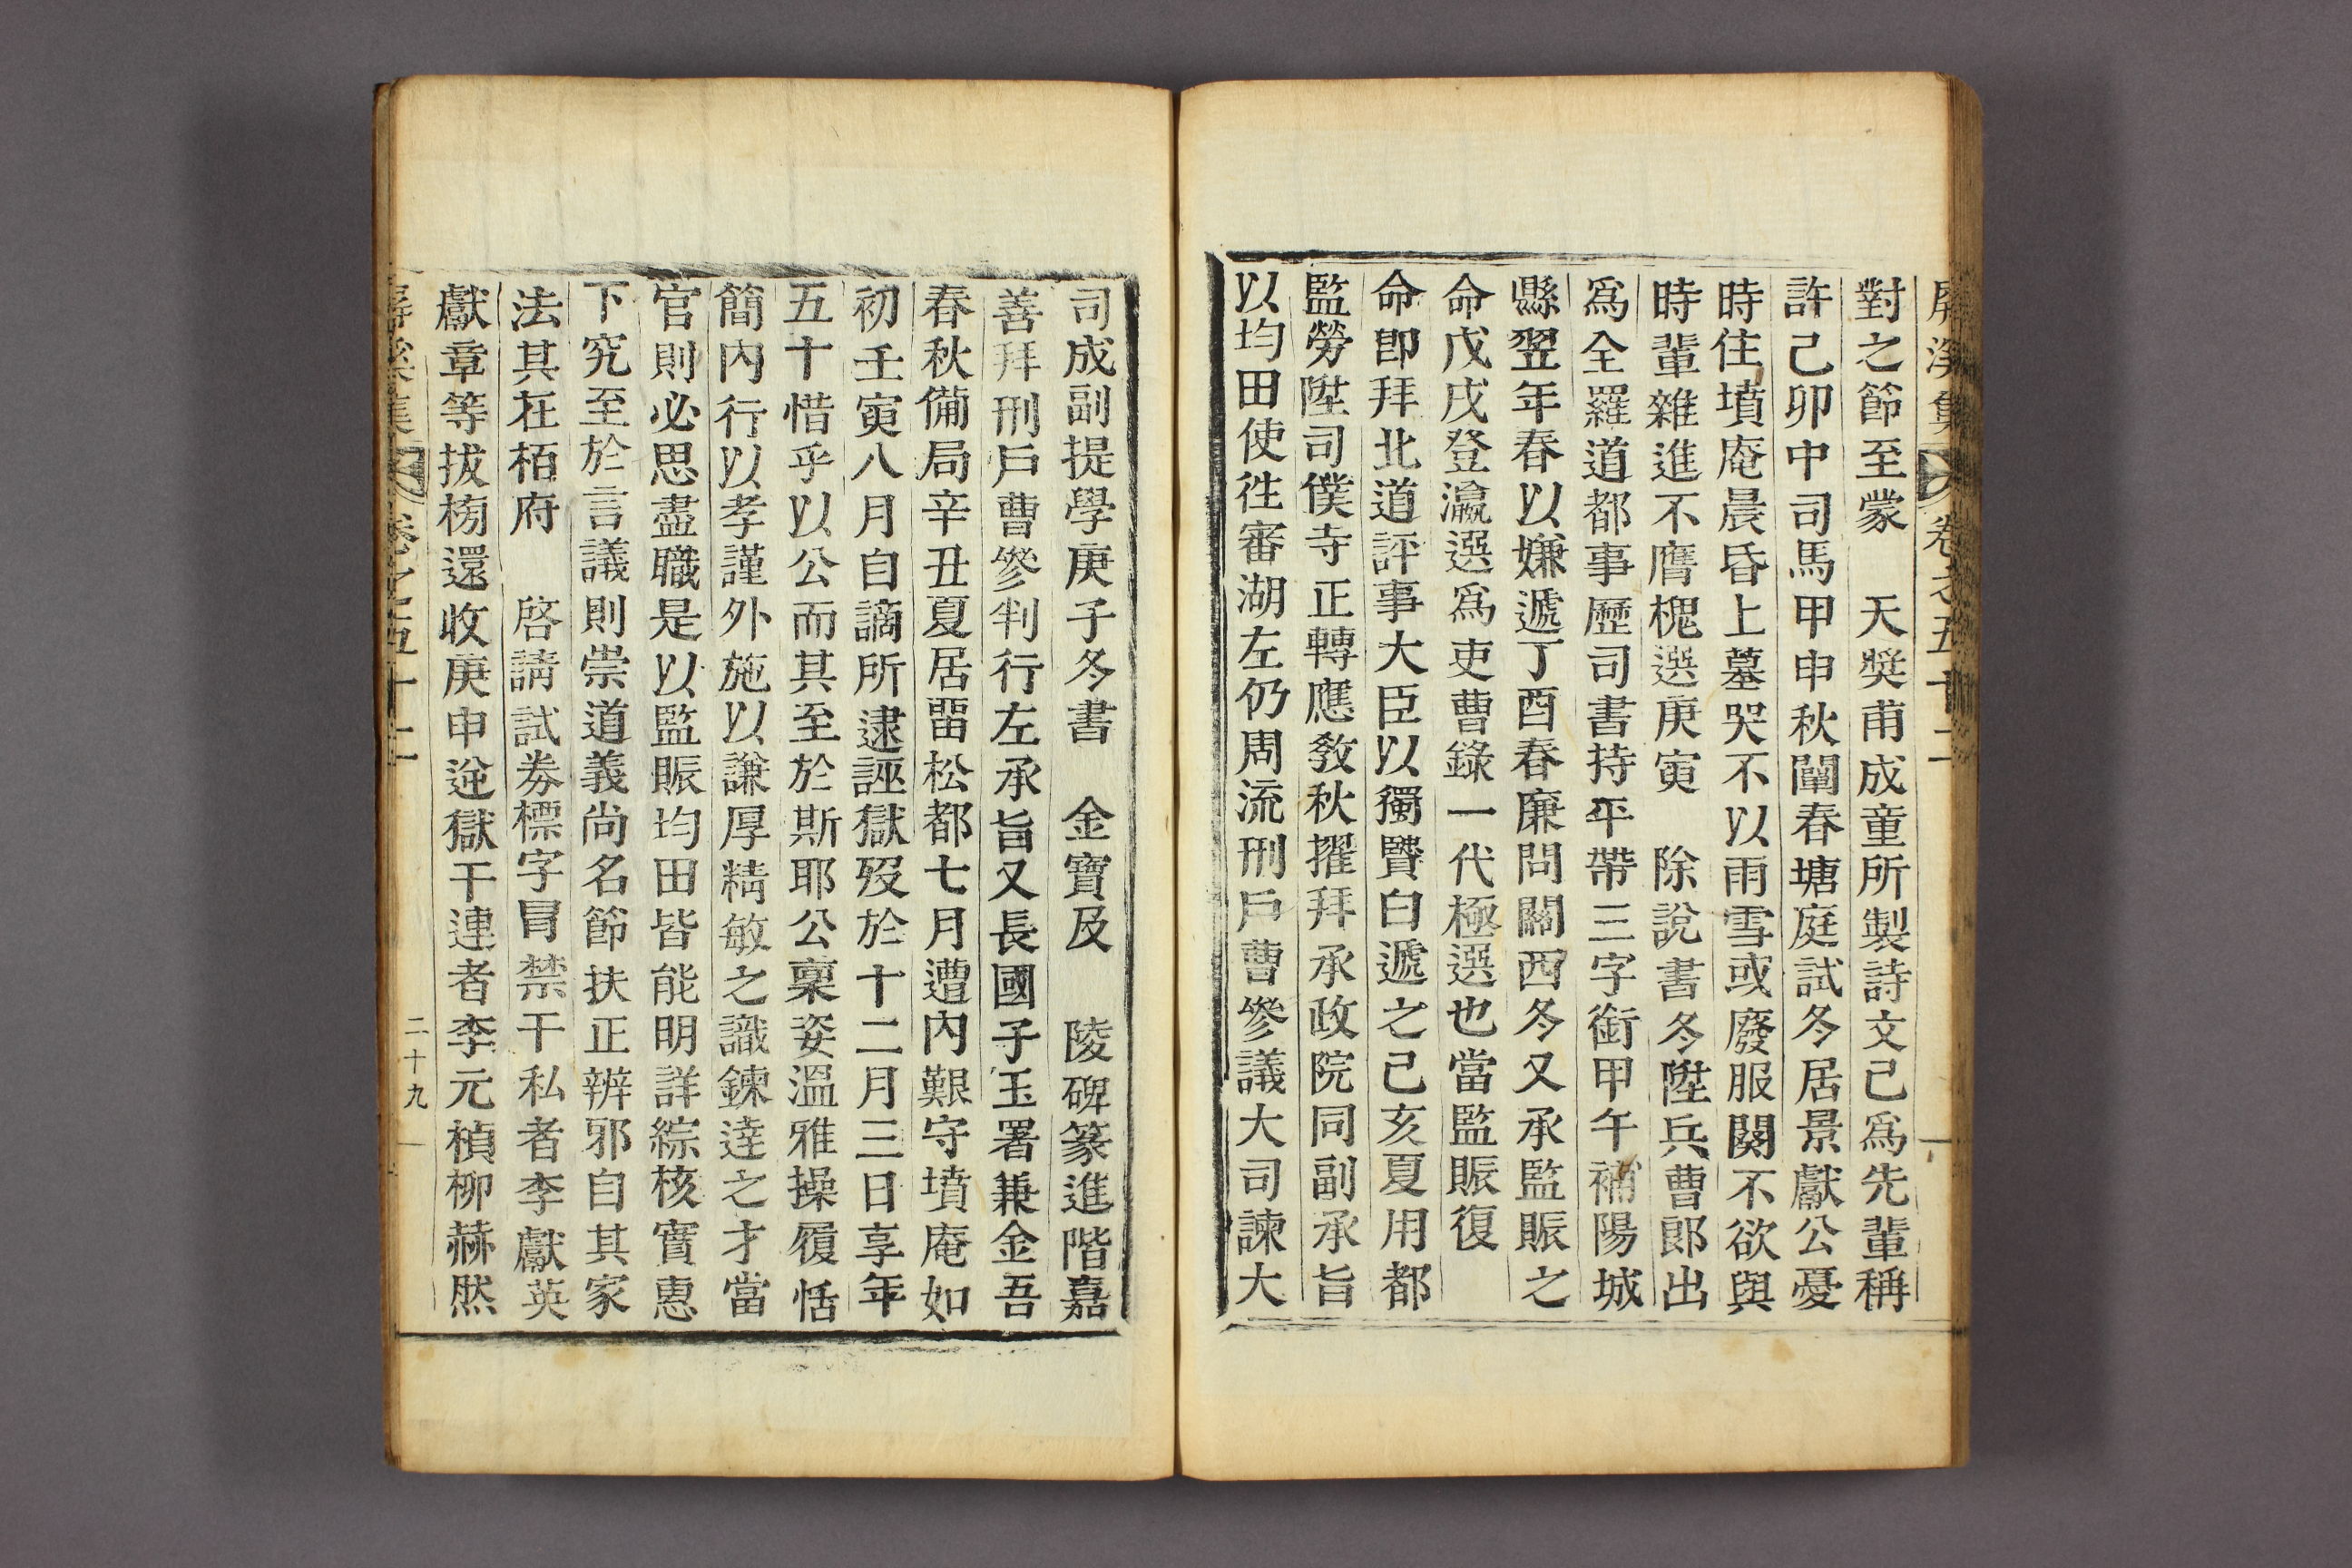 屛溪集 卷之五十二
對之節至蒙 天奬甫成童所製詩文已爲先輩稱
許己卯中司馬甲申秋闈春塘庭試冬居景獻公憂
時住墳庵晨昏上墓哭不以雨雪或廢服闋不欲與
時輩雜進不膺槐選庚寅 除說書冬陞兵曹郞出
爲全羅道都事歷司書持平帶三字銜甲午補陽城
縣翌年春以嫌遞丁酉春廉問關西冬又承監賑之
命戊戌登瀛選爲吏曹錄一代極選也當監賑復
命卽拜北道評事大臣以獨贒白遞之己亥夏用都
監勞陞司僕寺正轉應敎秋擢拜承政院同副承旨
以均田使徃審湖左仍周流刑戶曹參議大司諫大
司成副提學庚子冬書 金寶及 陵碑篆進階嘉
善拜刑戶曹參判行左承旨又長國子玉署兼金吾
春秋備局辛丑夏居畱松都七月遭內艱守墳庵如
初壬寅八月自謫所逮誣獄歿於十二月三日享年
五十惜乎以公而其至於斯耶公稟姿溫雅操履恬
簡內行以孝謹外施以謙厚精敏之識鍊達之才當
官則必思盡職是以監賑均田皆能明詳綜核實惠
下究至於言議則崇道義尙名節扶正辨邪自其家
法其在栢府 啓請試券標字冒禁干私者李獻英
獻章等拔榜還收庚申逆獄干連者李元楨柳赫然
屛溪集 卷之五十二 二十九